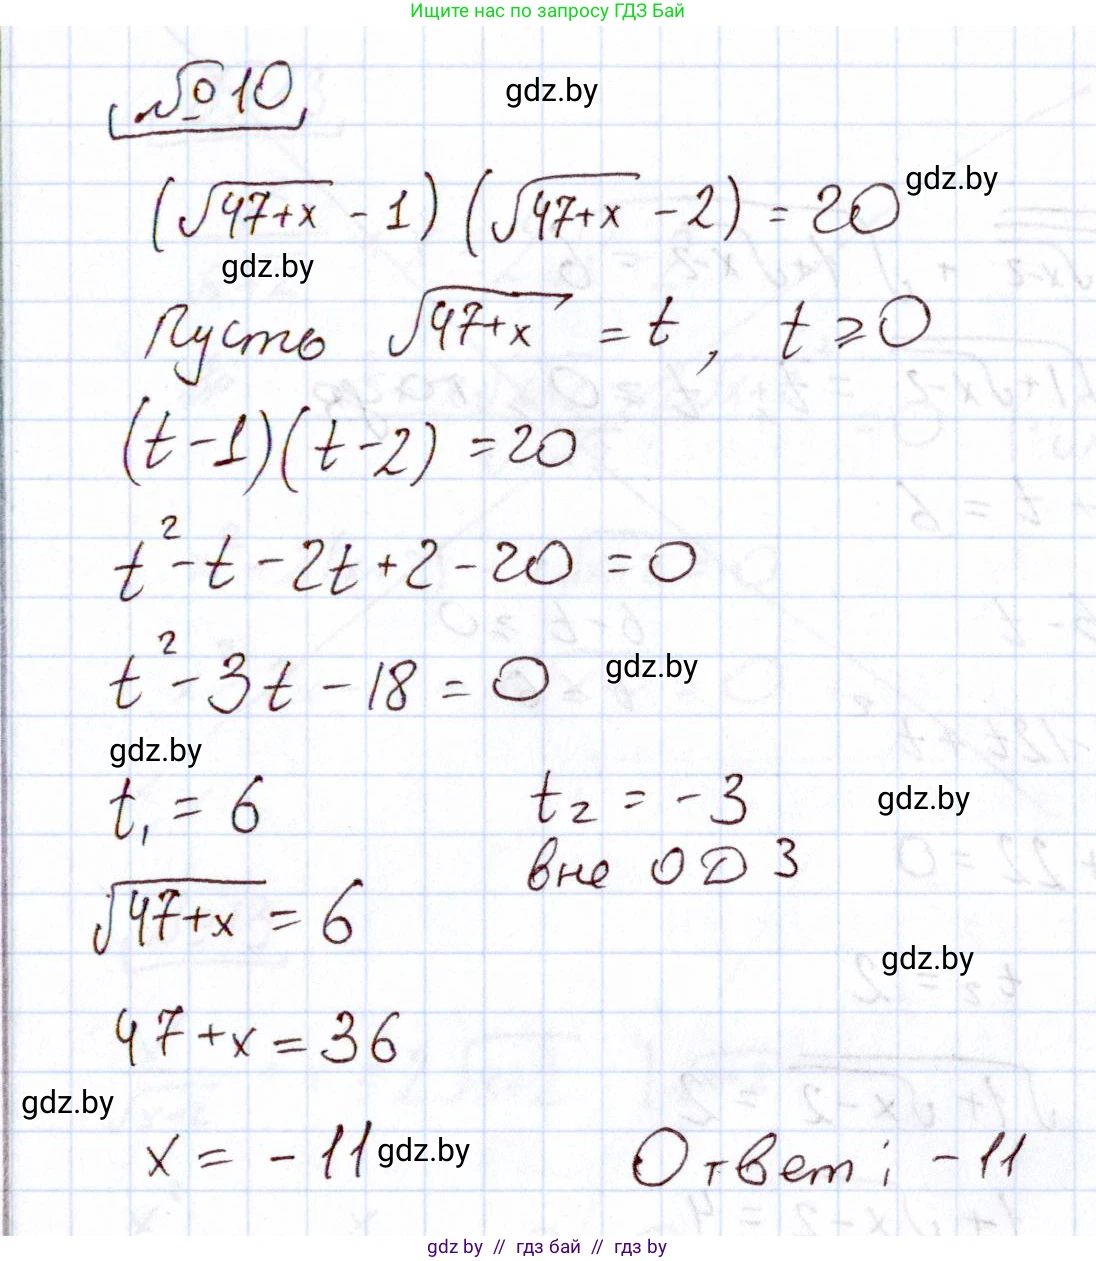 Ищите нас по запросу ГДЗ Бай
№10
gdz.by
(√47+x - 1) (√47+x - 2) = 20
gdz.by
gdz.by
Пусть √47+x = t, t ≥ 0
(t - 1)(t - 2) = 20
t² - t - 2t + 2 - 20 = 0
t² - 3t - 18 = 0
gdz.by
gdz.by
t₁ = 6 t₂ = -3
gdz.by
вне ОДЗ
√47+x = 6
gdz.by
47+x = 36
gdz.by
x = -11
gdz.by
Ответ: -11
gdz.by // гдз бай // гдз by